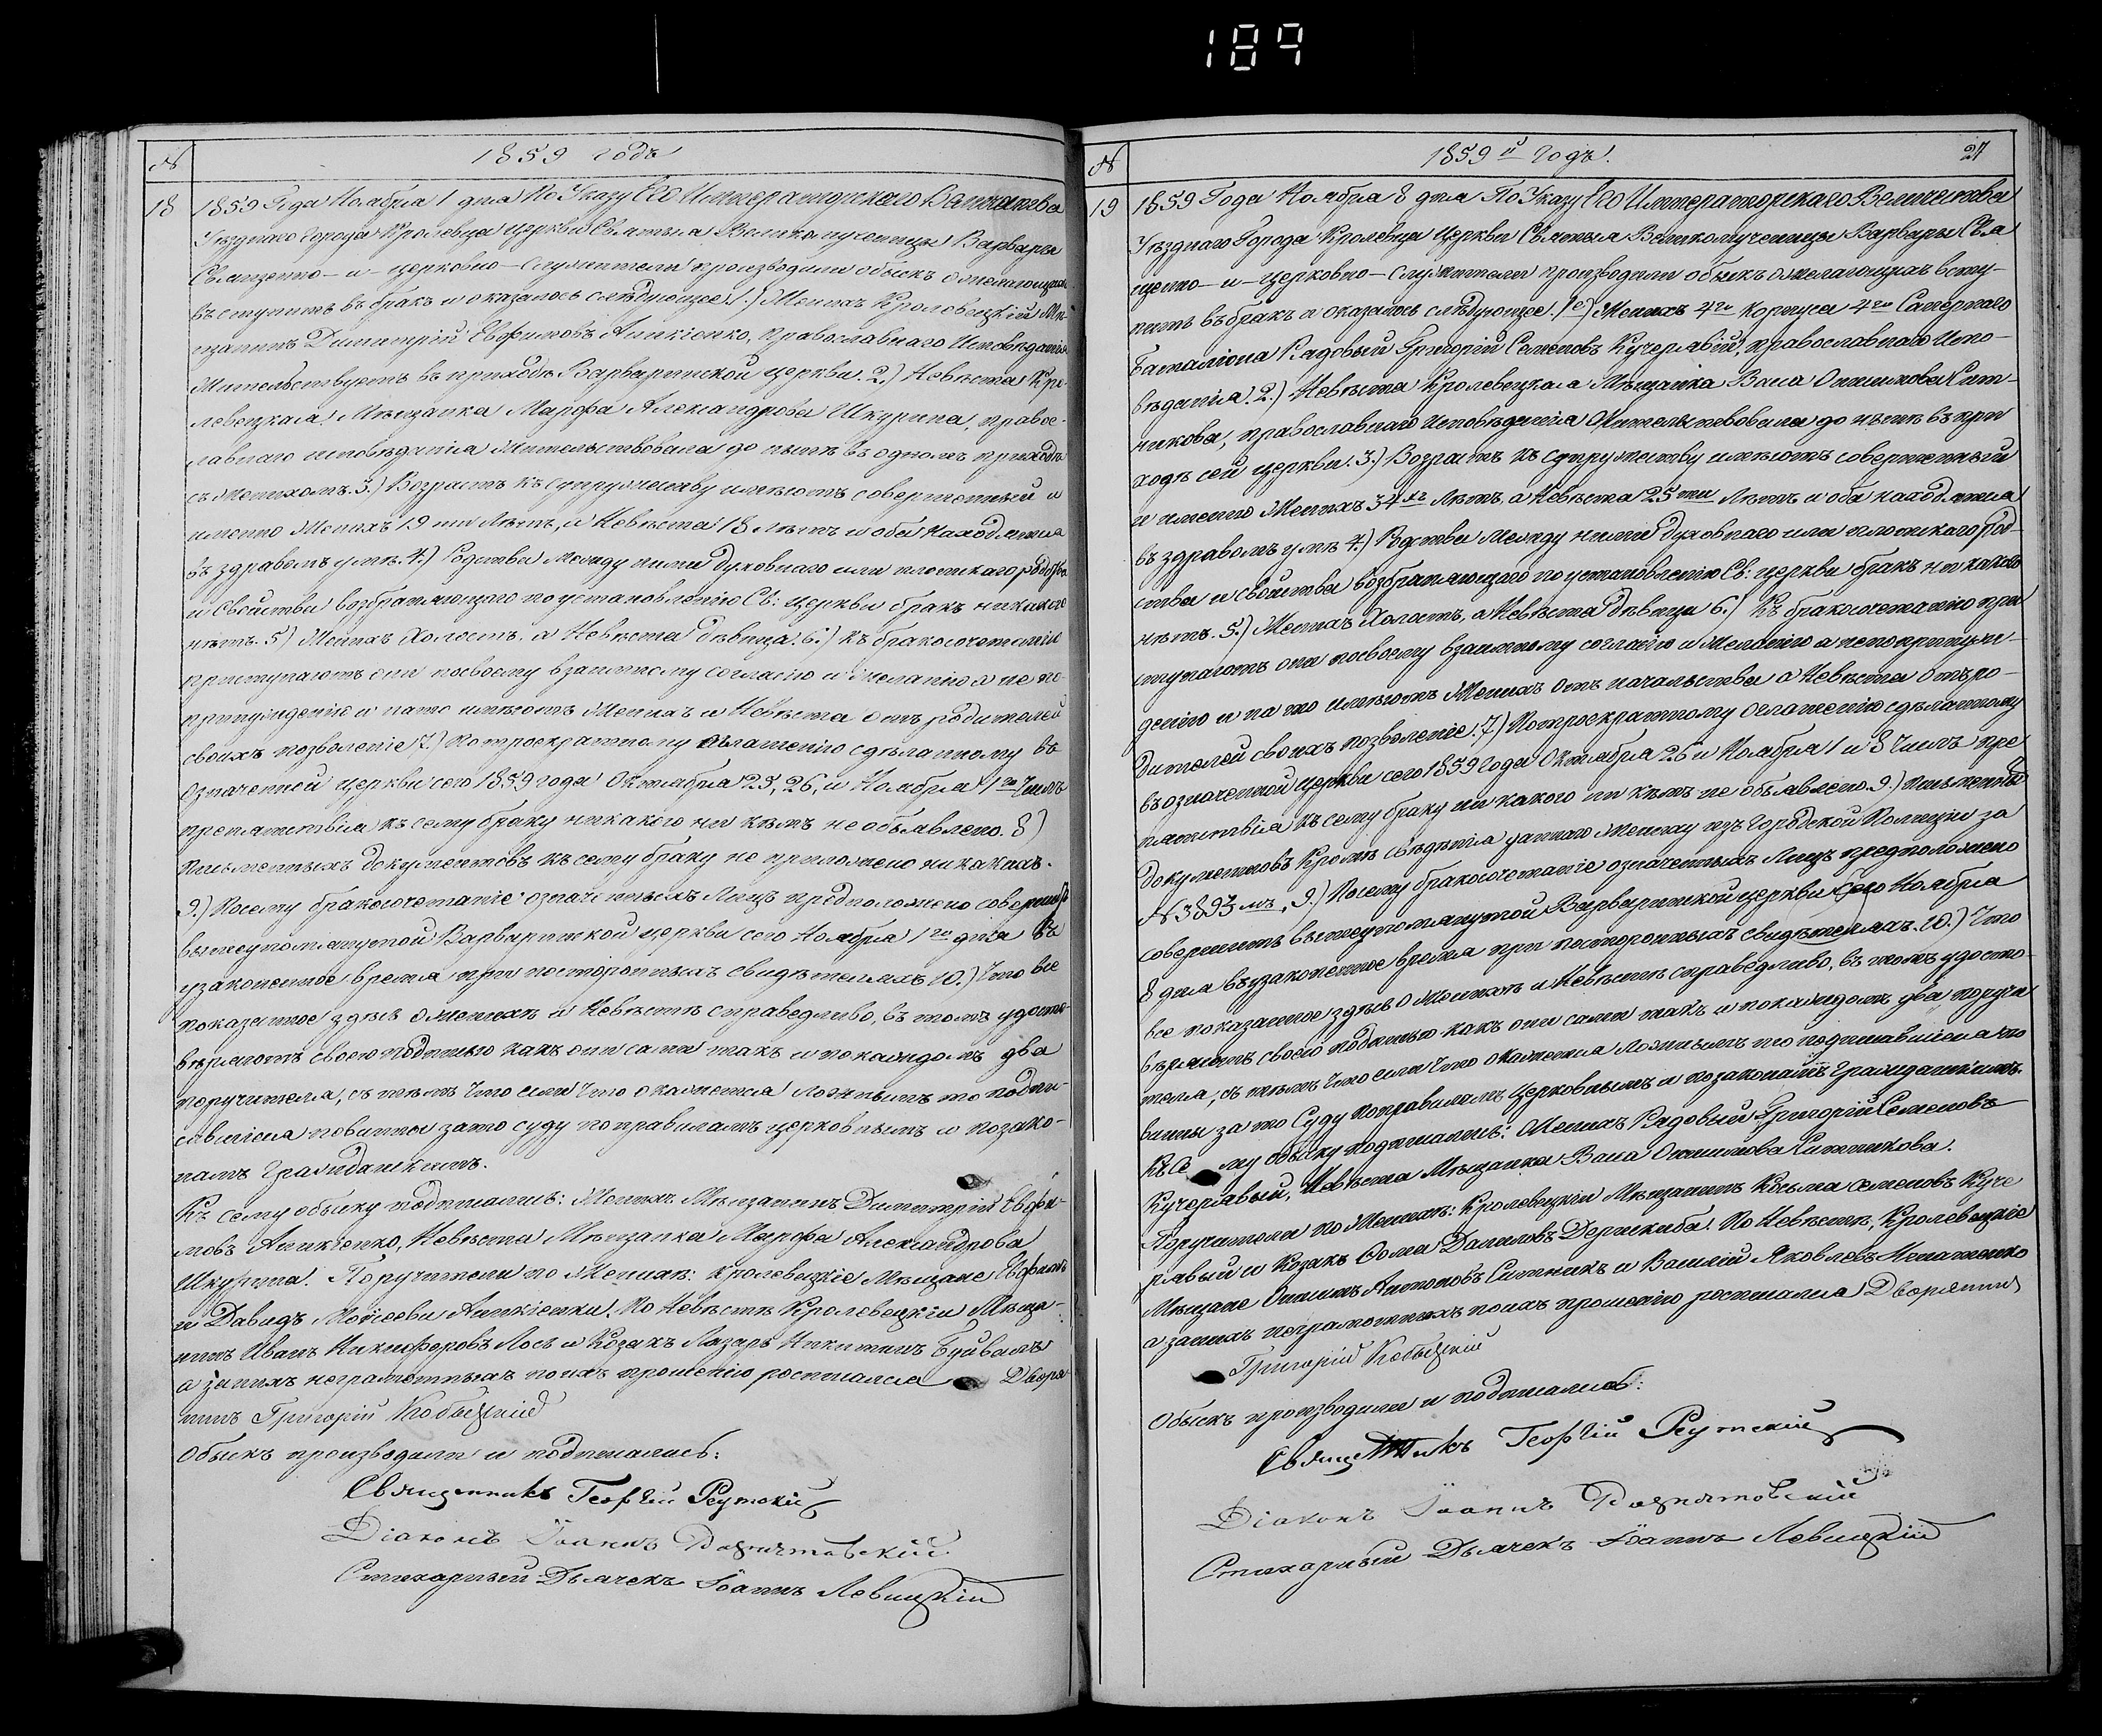 189
№
1859 годъ
18
1859 Года Ноября 1 дня По Указу Его Императорскаго Величества
Уѣзднаго Города Кролевца церкви Святыя Великомученицы Варвары
Священно-и-церковно-служители производили обыскъ о желающихъ
вступить въ бракъ и оказалось слѣдующее 1.) Женихъ Кролевецкій Мѣ-
щанинъ Димитрій Евфимовъ Аникіенко, православнаго Исповѣданія
Жительствуетъ въ приходѣ Варваринской церкви. 2.) Невѣста Кро-
левецкая Мѣщанка Марфа Александрова Шкурина, правос-
лавнаго исповѣданія жительствовала до нынѣ въ одномъ приходѣ
съ женихомъ. 3.) Возрастъ къ супружеству имѣютъ совершенный и
именно Женихъ 19 ти лѣтъ, а Невѣста 18 лѣтъ и оба находятся
въ здравомъ умѣ. 4.) Родства между ними духовнаго или плотскаго родства
и свойства возбраняющаго по установленію Св: церкви бракъ никакого
нѣтъ. 5) Женихъ Холостъ, а Невѣста дѣвица. 6.) Къ бракосочетанію
приступаютъ они посвоему взаимному согласію и желанію а не по-
принужденію и нато имѣютъ Женихъ и Невѣста отъ родителей
своихъ позволеніе 7.) Потроекратному оглашенію сдѣланному въ
означенной церкви сего 1859 года Октября 25, 26, и Ноября 1го Числъ
препятствія къ сему браку никакого ни кѣмъ не объявлено. 8)
Письменныхъ документовъ къ сему браку не приложено никакихъ.
9.) Посему бракосочетаніе означенныхъ Лицъ предположено совершить
вышеупомянутой Варваринской церкви сего Ноября 1го дня въ
узаконенное время при постороннихъ свидѣтеляхъ 10.) Что все
показанное здѣсь о женихѣ и Невѣстѣ справедливо, въ томъ удосто-
вѣряютъ своею подписью какъ они сами такъ и покаждомъ два
поручителя, съ тѣмъ что если что окажется ложнымъ то подпи-
савшіеся повинны зато суду по правиламъ церковнымъ и позако-
намъ гражданскимъ.
Къ сему обыску подписались: Женихъ Мѣщанинъ Димитрій Евфи-
мовъ Аникіенко, Невѣста Мѣщанка Марфа Александрова
Шкурина. Поручители по Женихѣ: Кролевецкіе Мѣщане Евфимъ
и Давидъ Моисеевы Аникіенки. По Невѣстѣ Кролевецкій Мѣща-
нинъ Иванъ Никифоровъ Лось и Козакъ Лазарь Никитинъ Буйвалъ
а заихъ неграмотныхъ поихъ прошенію росписался Дворя-
нинъ Григорій Кобызскій
Обыскъ производили и подписались:
Священникъ Георгій Реутскій
Діаконъ Іоаннъ
Стихарный Дьячекъ Іоаннъ Левицкій
№
1859й Годъ.
27
19
1859 Года Ноября 8 дня По Указу Его Императорскаго Величества
Уѣзднаго Города Кролевца Церкви Святыя Великомученицы Варвары Свя
щенно-и-церковно-служители производили обыскъ о желающихъ всту-
пить въ бракъ и оказалось слѣдующее. 1е) Женихъ 4го Корпуса 4го Сапернаго
Баталіона Рядовый Григорій Семеновъ Кучерявый, православнаго Испо-
вѣданія. 2.) Невѣста Кролевецкая Мѣщанка Васа Онисимова Сит-
никова, православнаго исповѣданія Жительствовала до нынѣ въ при
ходѣ сей церкви. 3.) Возрастъ къ супружеству имѣютъ совершенный
и именно Женихъ 34хъ Лѣтъ, а Невѣста 25ти Лѣтъ и оба находятся
въ здравомъ умѣ 4.) Родства между ними духовнаго или плотскаго род-
ства и свойства возбраняющаго по установленію Св: церкви бракъ никакого
нѣтъ. 5.) Женихъ Холостъ, а Невѣста дѣвица 6.) Къ бракосочетанію при
ступаютъ они посвоему взаимному согласію и желанію а непопринуж-
денію и на то имѣютъ Женихъ отъ начальства а Невѣста отъ ро-
дителей своихъ позволеніе. 7.) Потроекратному Оглашенію сдѣланному
въ означенной церкви сего 1859 года Октября 26 и Ноября 1 и 8 Числъ пре
пятствія къ сему браку ни какого ни кѣмъ не объявлено. 9.) Письменныхъ
документовъ Кромѣ свѣдѣнія даннаго жениху изъ Городской Полиціи за
№ 3893мъ, 9.) Посему бракосочетаніе означенныхъ Лицъ предположено
совершить вышеупомянутой Варваринской церкви сего Ноября
8 дня въ узаконенное время при постороннихъ свидѣтеляхъ. 10.) Что
все показанное здѣсь о Женихѣ и Невѣстѣ справедливо, въ томъ удосто-
вѣряютъ своею подписью какъ они сами такъ и покаждомъ два поручи
теля, съ тѣмъ что если что окажется ложнымъ то подписавшіеся по
винны за то Суду поправиламъ Церковнымъ и позаконамъ Гражданскимъ.
Къ Сему обыску подписались: Женихъ Рядовый Григорій Семеновъ
Кучерявый, Невѣста Мѣщанка Васа Онисимова Ситникова.
Поручители по Женихѣ: Кролевецкіи Мѣщанинъ Косьма Семеновъ Куче
рявый и Козакъ Фома Даниловъ Держикаба. По Невѣстѣ, Кролевецкіе
Мѣщане Онисимъ Антоновъ Ситникъ и Василій Яковлевъ Игнатенко
а заихъ неграмотныхъ поихъ прошенію росписался Дворянинъ
Григорій Кобызскій
Обыскъ производили и подписались:
Священникъ Георгій Реутскій
Діаконъ Іоаннъ
Стихарный Дьячекъ Іоаннъ Левицкій